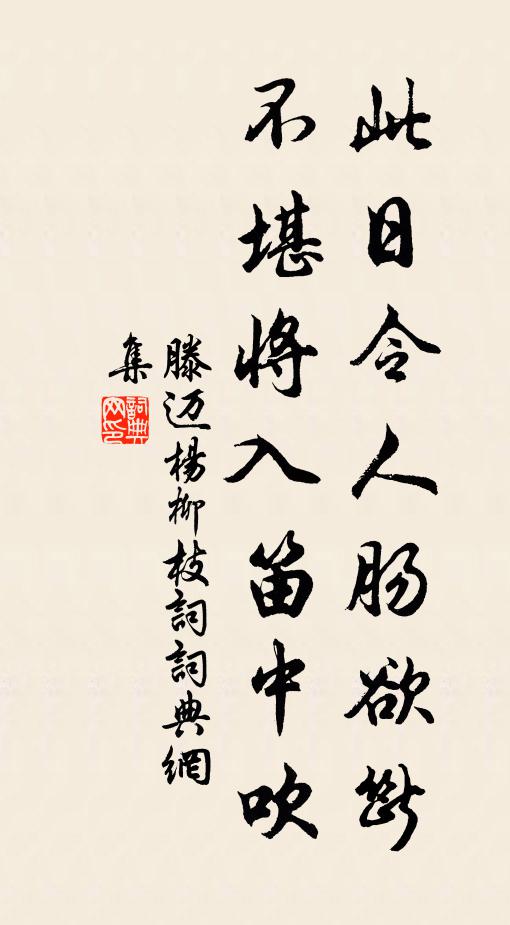 此日令人肠欲断
不堪将入笛中吹
滕迈杨柳枝詞詞典網
集
詞典
网印